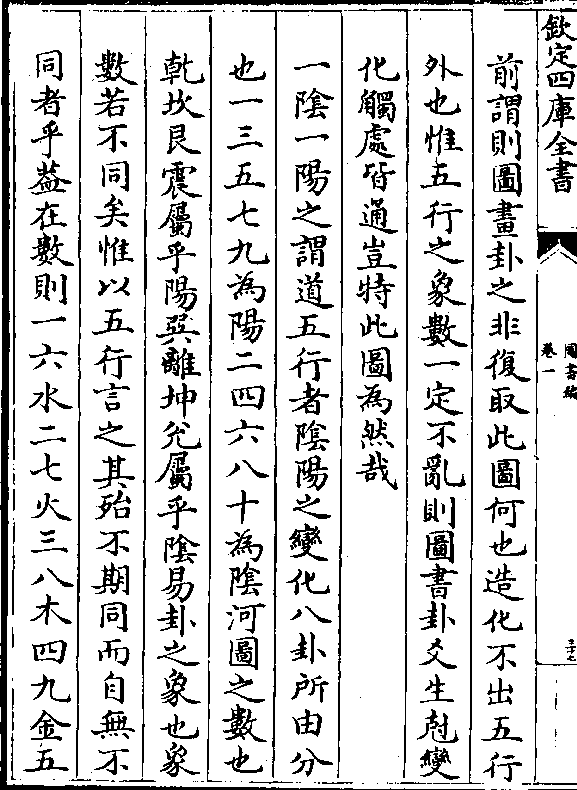 欽定四庫全書
圖書編
卷一
三十七
前謂則圖畫卦之非復取此圖何也造化不出五行
外也惟五行之象數一定不亂則圖書卦爻生尅變
化觸處皆通豈特此圖為然哉
一陰一陽之謂道五行者陰陽之變化八卦所由分
也一三五七九為陽二四六八十為陰河圖之數也
乾坎艮震屬乎陽巽離坤兌屬乎陰易卦之象也象
數若不同矣惟以五行言之其殆不期同而自無不
同者乎葢在數則一六水二七火三八木四九金五